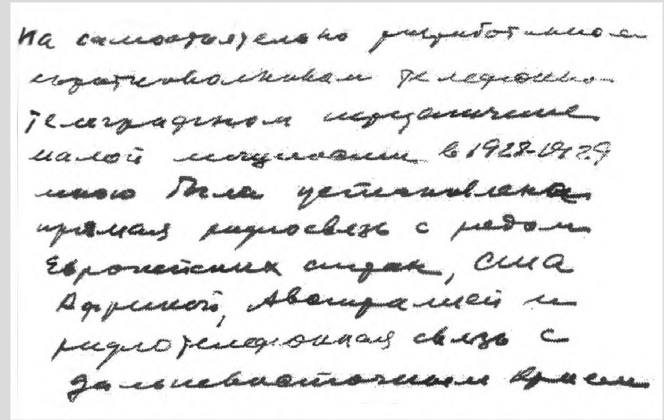 На самостоятельно разработанном
коротковолновом телефонно-
телеграфном передатчике
малой мощности в 1928-1929
мною была установлена
прямая радиосвязь с рядом
Европейских стран, США
Африкой, Австралией и
радиотелефонная связь с
Дальневосточным краем